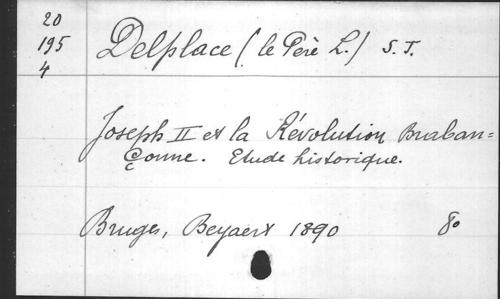 20
195
4
Delplace (le Père L.) S. J.
Joseph II et la Révolution Braban=
çonne. Etude historique.
Bruges, Beyaert 1890 8º